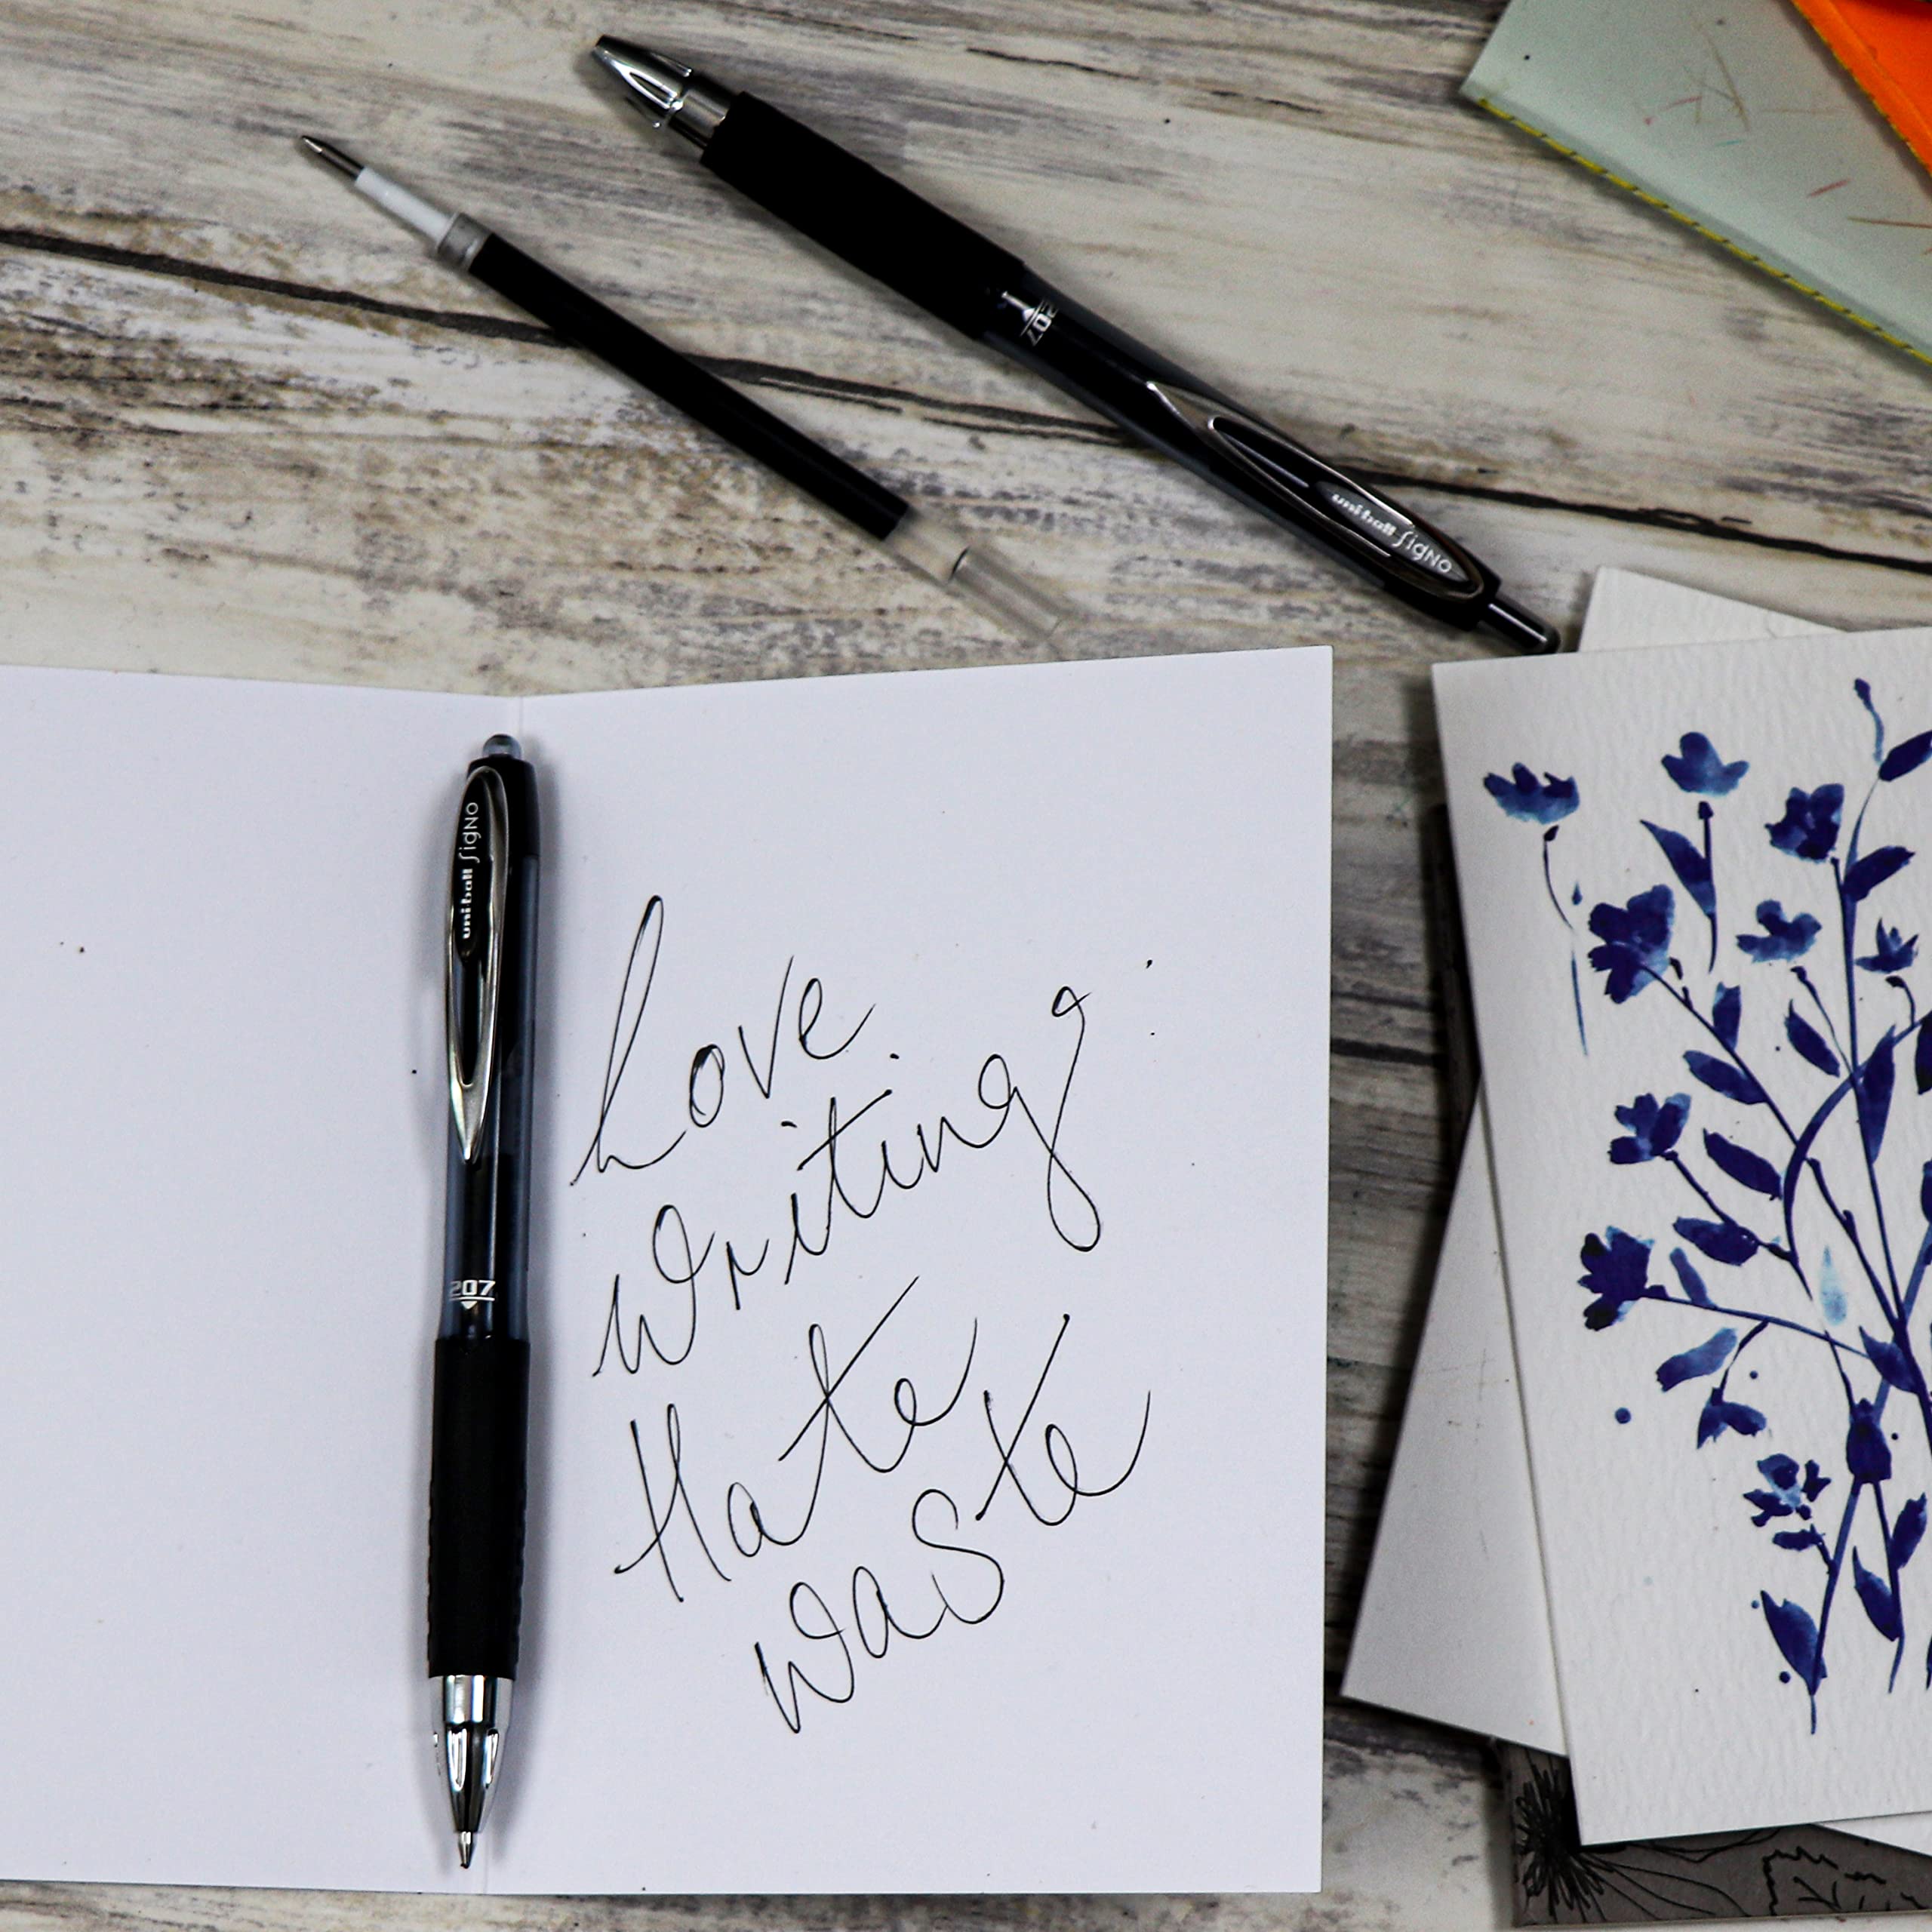 207
uni-ball SigNO
uni-ball SigNO
207
Love
Writing
Hate
waste